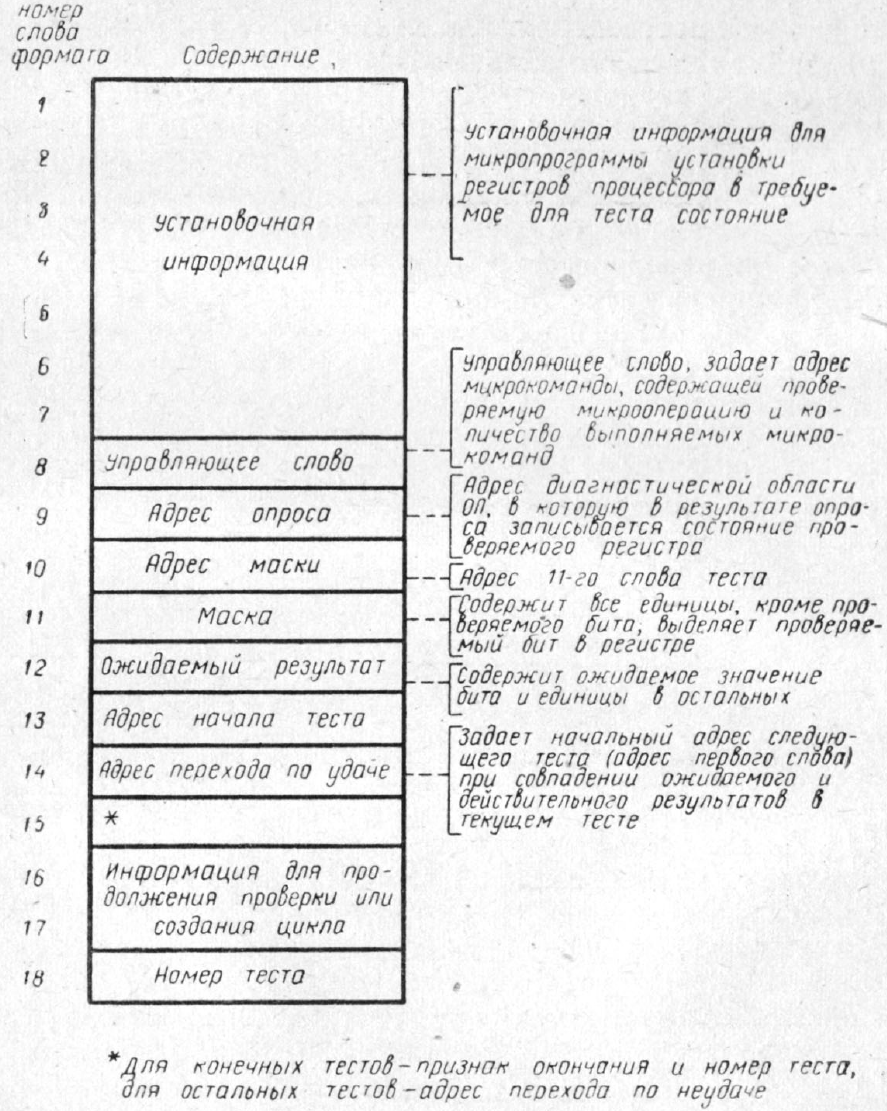 номер
слова
формата
Содержание
1
2
3
4
5
6
7
8
9
10
11
12
13
14
15
16
17
18
Установочная
информация
Управляющее слово
Адрес опроса
Адрес маски
Маска
Ожидаемый результат
Адрес начала теста
Адрес перехода по удаче
*
Информация для про-
должения проверки или
создания цикла
Номер теста
Установочная информация для
микропрограммы установки
регистров процессора в требуе-
мое для теста состояние
Управляющее слово, задает адрес
микрокоманды, содержащей прове-
ряемую микрооперацию и ко-
личество выполняемых микро-
команд
Адрес диагностической области
ОП, в которую в результате опро-
са записывается состояние про-
веряемого регистра
Адрес 11-го слова теста
Содержит все единицы, кроме про-
веряемого бита, выделяет проверяе-
мый бит в регистре
Содержит ожидаемое значение
бита и единицы в остальных
Задает начальный адрес следую-
щего теста (адрес первого слова)
при совпадении ожидаемого и
действительного результатов в
текущем тесте
*Для конечных тестов-признак окончания и номер теста,
для остальных тестов-адрес перехода по неудаче